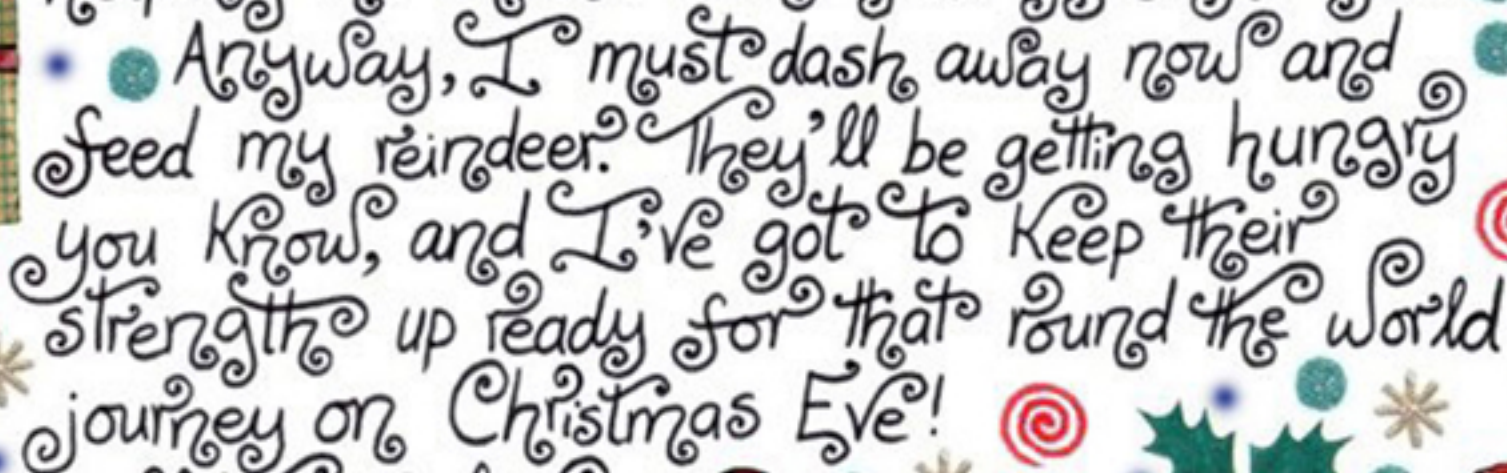 Anyway, I must dash away now and
feed my reindeer. They'll be getting hungry
you know, and I've got to keep their
strength up ready for that round the world
journey on Christmas Eve!